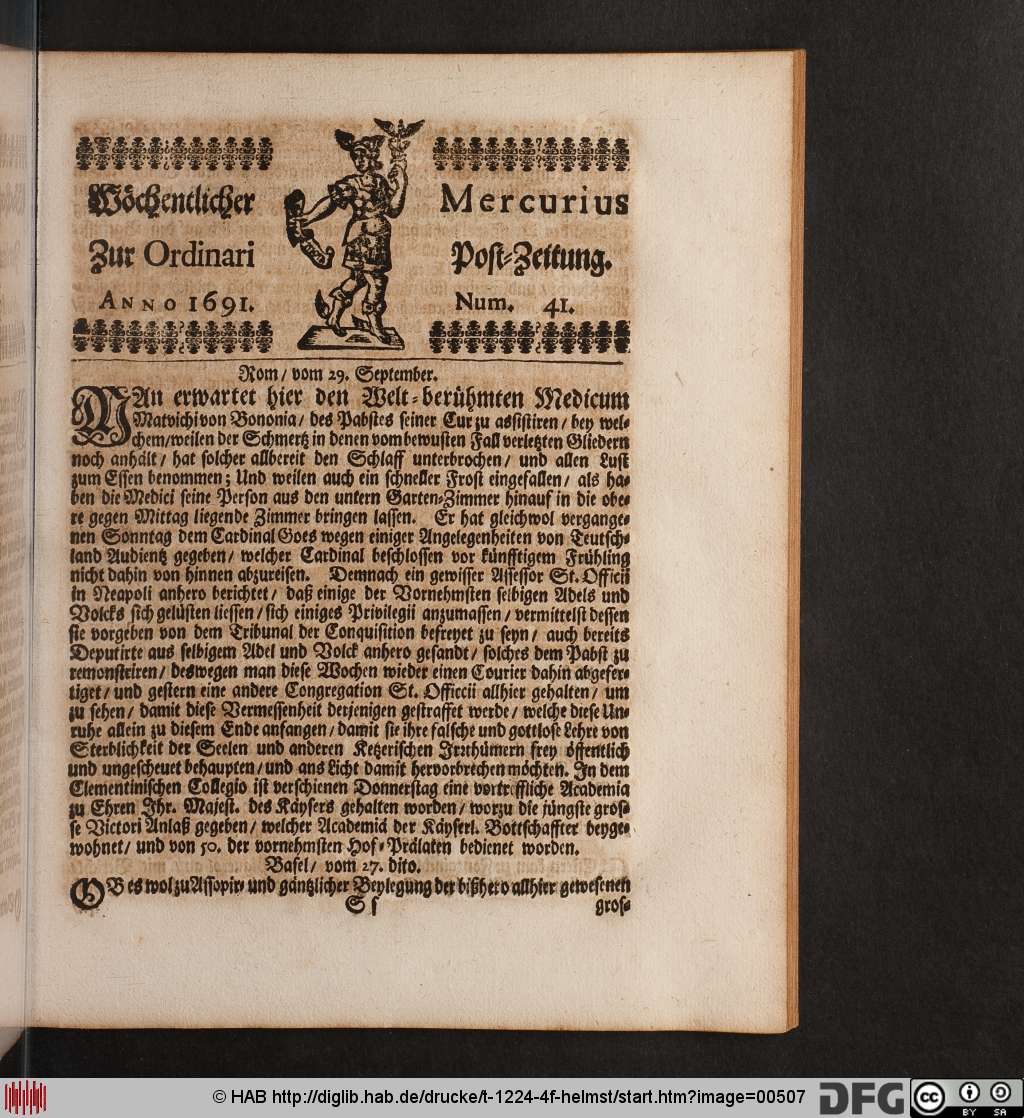 Wöchentlicher Mercurius
Zur Ordinari Post-Zeitung.
ANNO 1691. Num. 41.
Rom / vom 29. September.
MAn erwartet hier den Welt-berühmten Medicum
Matvichi von Bononia / des Pabstes seiner Cur zu assistiren / bey wel-
chem / weilen der Schmertz in denen vom bewusten Fall verletzten Gliedern
noch anhält / hat solcher allbereit den Schlaff unterbrochen / und allen Lust
zum Essen benommen; Und weilen auch ein schneller Frost eingefallen / als ha-
ben die Medici seine Person aus den untern Garten-Zimmer hinauf in die obe-
re gegen Mittag liegende Zimmer bringen lassen. Er hat gleichwol vergange-
nen Sonntag dem Cardinal Goes wegen einiger Angelegenheiten von Teutsch-
land Audientz gegeben / welcher Cardinal beschlossen vor künfftigem Frühling
nicht dahin von hinnen abzureisen. Demnach ein gewisser Assessor St. Officii
in Neapoli anhero berichtet / daß einige der Vornehmsten selbigen Adels und
Volcks sich gelüsten liessen / sich einiges Privilegii anzumassen / vermittelst dessen
sie vorgeben von dem Tribunal der Conquisition befreyet zu seyn / auch bereits
Deputirte aus selbigem Adel und Volck anhero gesandt / solches dem Pabst zu
remonstriren / deswegen man diese Wochen wieder einen Courier dahin abgefer-
tiget / und gestern eine andere Congregation St. Officcii allhier gehalten / um
zu sehen / damit diese Vermessenheit derjenigen gestraffet werde / welche diese Un-
ruhe allein zu diesem Ende anfangen / damit sie ihre falsche und gottlose Lehre von
Sterblichkeit der Seelen und anderen Ketzerischen Irrthümern frey öffentlich
und ungescheuet behaupten / und ans Licht damit hervorbrechen möchten. In dem
Clementinischen Collegio ist verschienen Donnerstag eine vortreffliche Academia
zu Ehren Ihr. Majest. des Käysers gehalten worden / worzu die jüngste gros-
se Victori Anlaß gegeben / welcher Academiâ der Käyserl. Bottschaffter beyge-
wohnet / und von 50. der vornehmsten Hof-Prälaten bedienet worden.
Basel / vom 27. dito.
OB es wol zu Assopir- und gäntzlicher Beylegung der bißhero allhier gewesenen
S s gros-
© HAB http://diglib.hab.de/drucke/t-1224-4f-helmst/start.htm?image=00507 DFG cc BY SA